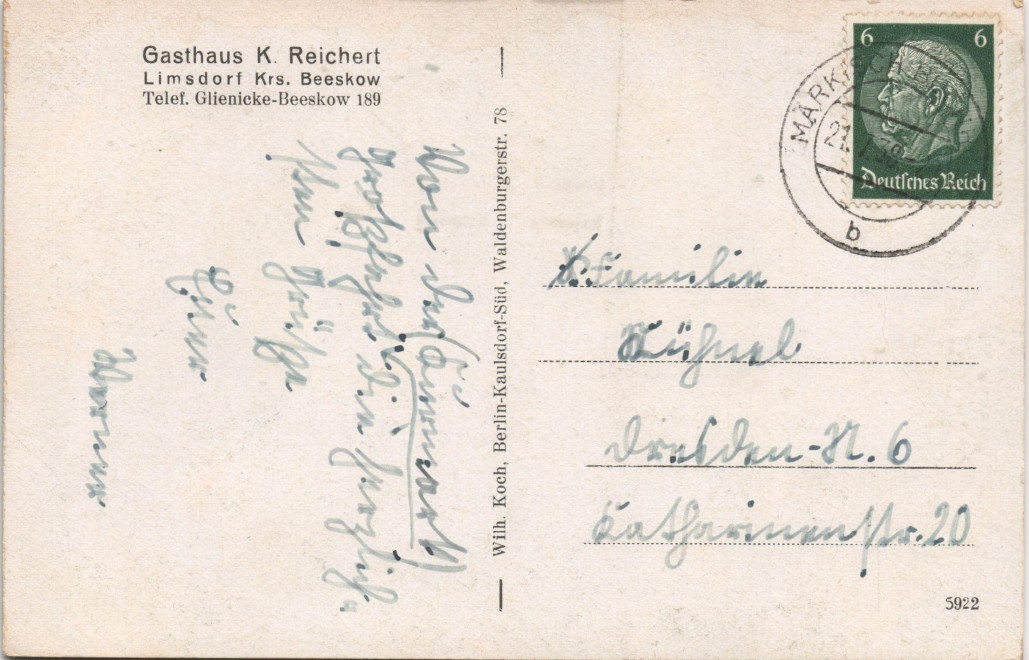 Gasthaus K. Reichert
Limsdorf Krs. Beeskow
Telef. Glienicke-Beeskow 189
Von der Kurmark
großfahrt die herzlich-
sten Grüße
Euer
Werner
Wilh. Koch, Berlin-Kaulsdorf-Süd, Waldenburgerstr. 78
6 6
Deutsches Reich
MÄRKISCH
21.7.39
b
Familie
Kühnel
Dresden-N. 6
Katharinenstr. 20
5922